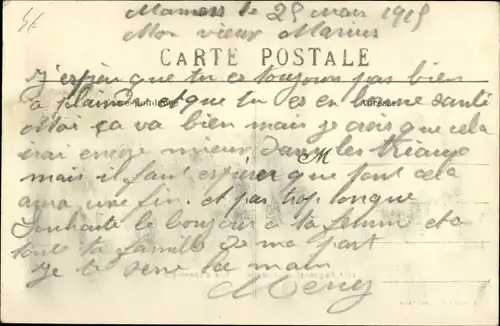 Mamers le 25 mars 1915
Mon vieux Marius
CARTE POSTALE
J'espère que tu es toujours pas bien
à plaindre et que tu es en bonne santé
Moi ça va bien mais je crois que cela
irai encore mieux dans les
M
mais il faut espérer que tout cela
aura une fin. et pas trop longue
Souhaite le bonjour à ta femme et a
toute ta famille de ma part
Je te serre la main